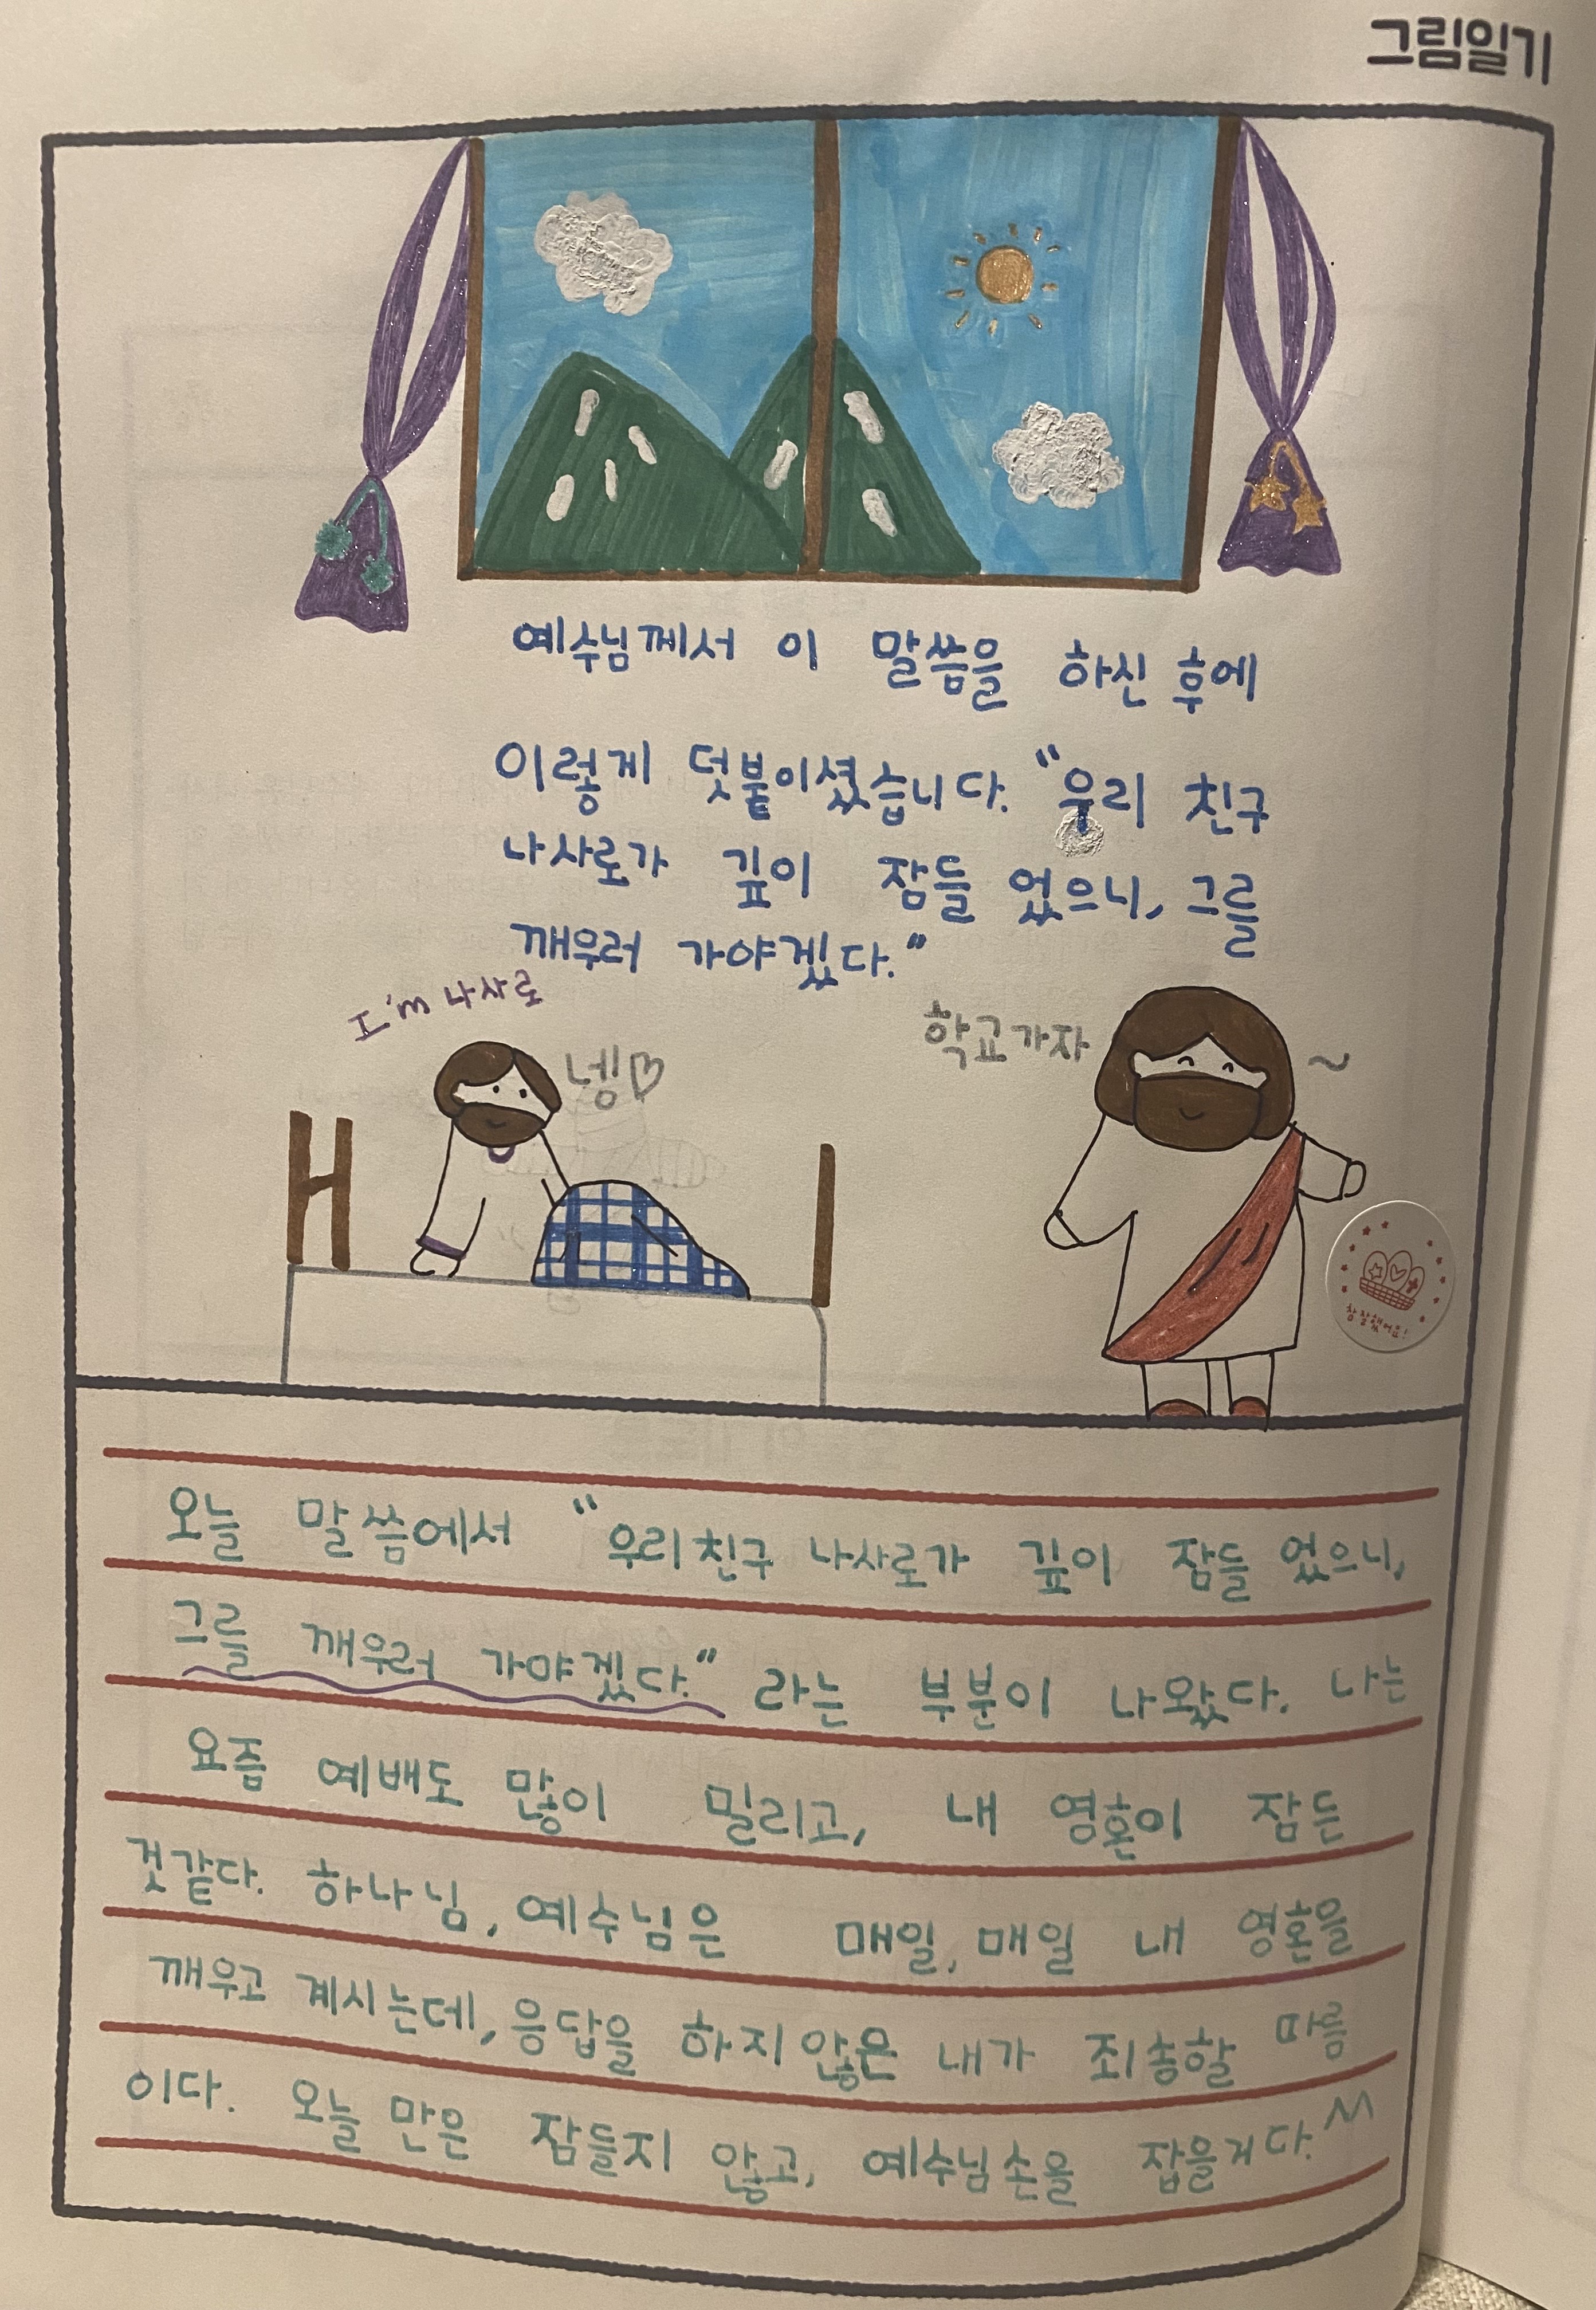 그림일기
예수님께서 이 말씀을 하신 후에
이렇게 덧붙이셨습니다. "우리 친구
나사로가 깊이 잠들 었으니, 그를
깨우러 가야겠다."
I'm 나사로
넹♡
학교가자 ~
참 잘했어요!
오늘 말씀에서 "우리친구 나사로가 깊이 잠들 었으니,
그를 깨우러 가야겠다." 라는 부분이 나왔다. 나는
요즘 예배도 많이 밀리고, 내 영혼이 잠든
것같다. 하나님, 예수님은 매일, 매일 내 영혼을
깨우고 계시는데, 응답을 하지않은 내가 죄송할 따름
이다. 오늘 만은 잠들지 않고, 예수님손을 잡을거다.^^